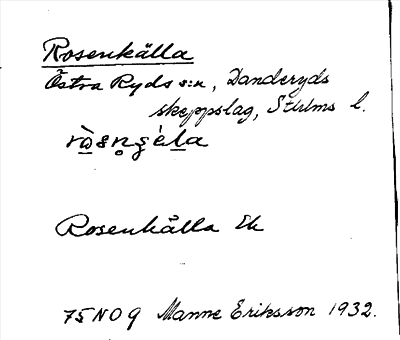 Rosenkälla
Östra Ryds s:n, Danderyds
skeppslag, Sthlms l.
Rosenkälla Ek
75 NO 9 Manne Eriksson 1932.